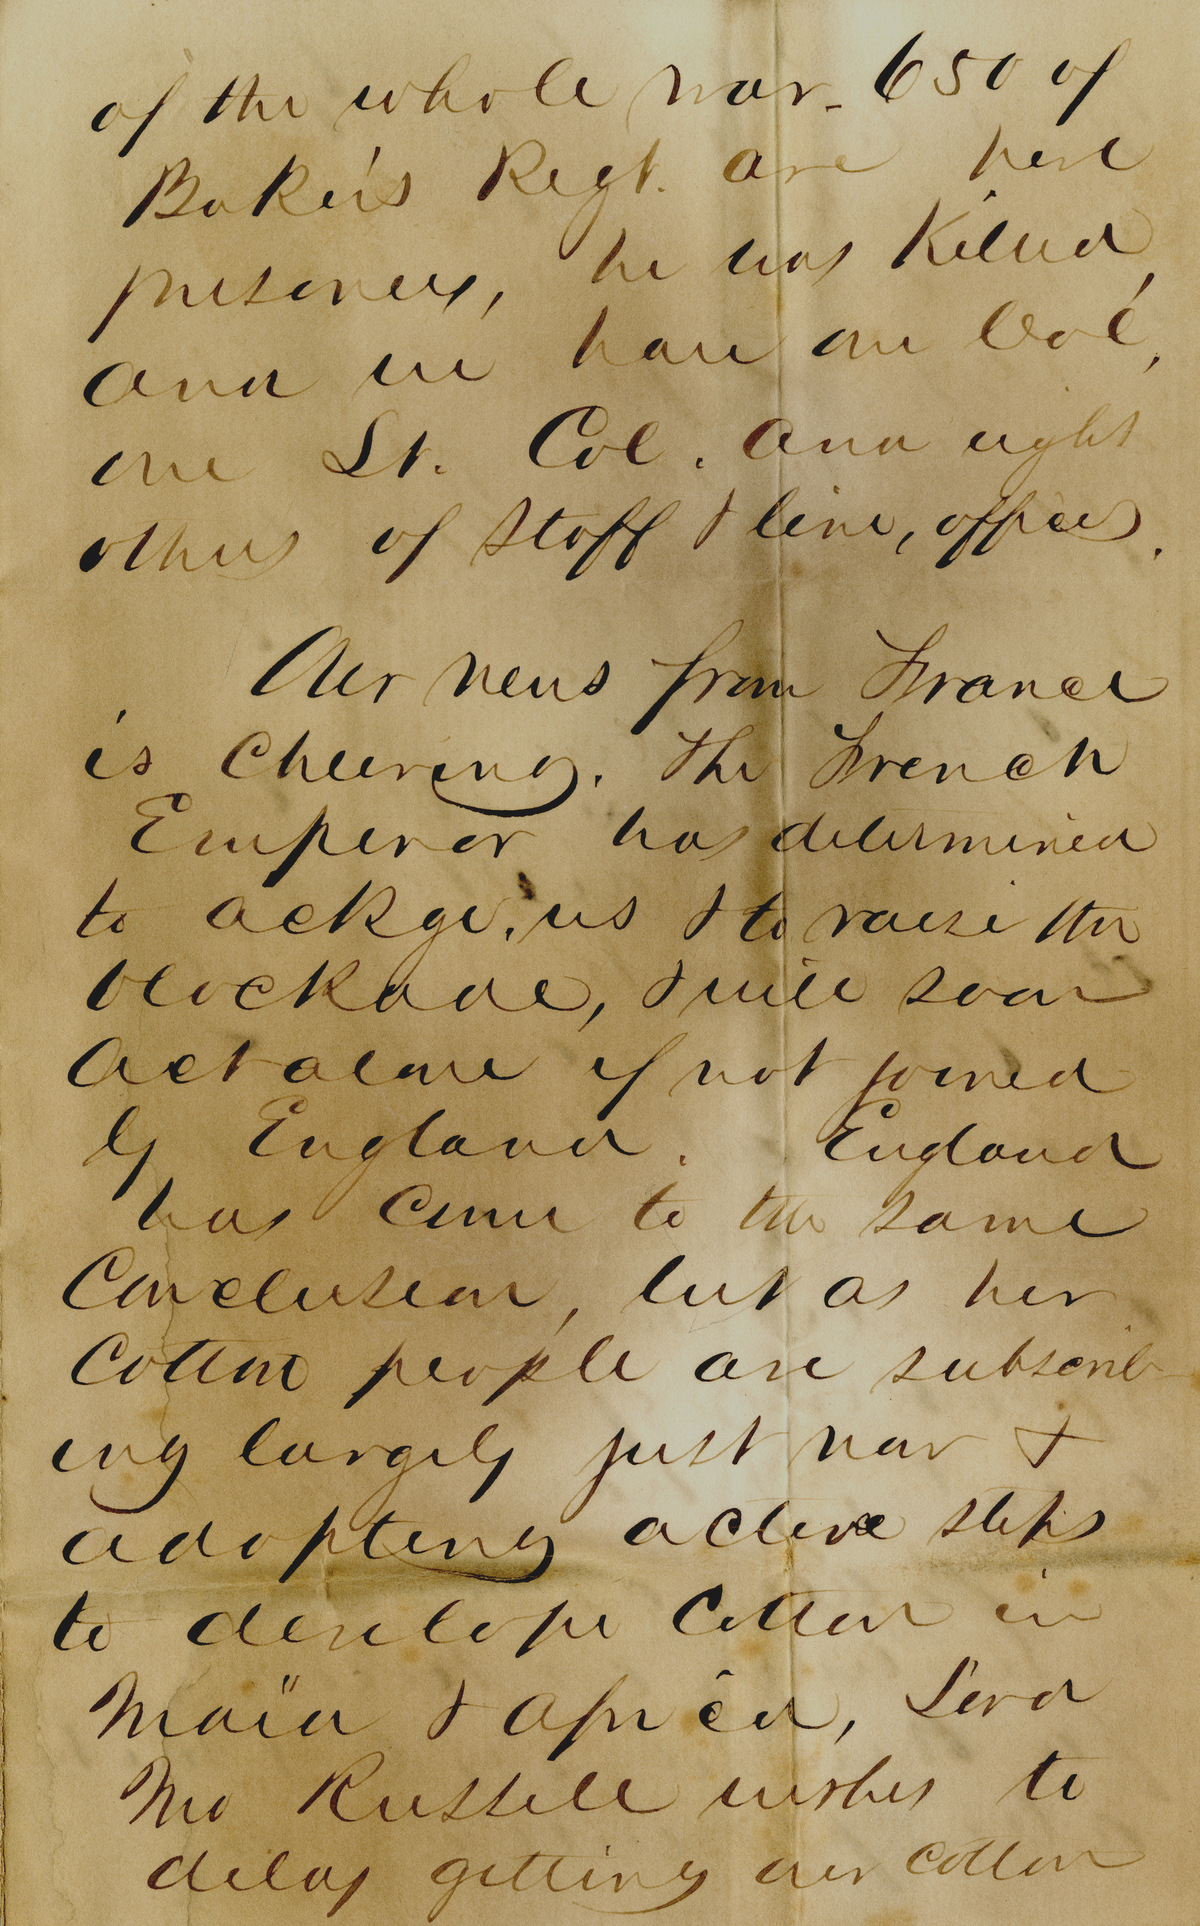 of the whole war. 650 of
Baker's Regt. are here
prisoners, he was Killed,
and we have one Col,
one Lt. Col. and eight
others of staff & line, officers.
Our news from France
is cheering. The French
Emperor has determined
to ackge. us & to raise the
blockade, & will soon
act alone if not joined
by England. England
has come to the same
Conclusion, but as her
Cotton people are subscrib-
ing largely just now &
adopting active steps
to develope Cotton in
& Africa, Lord
Russell wishes to
delay getting our cotton